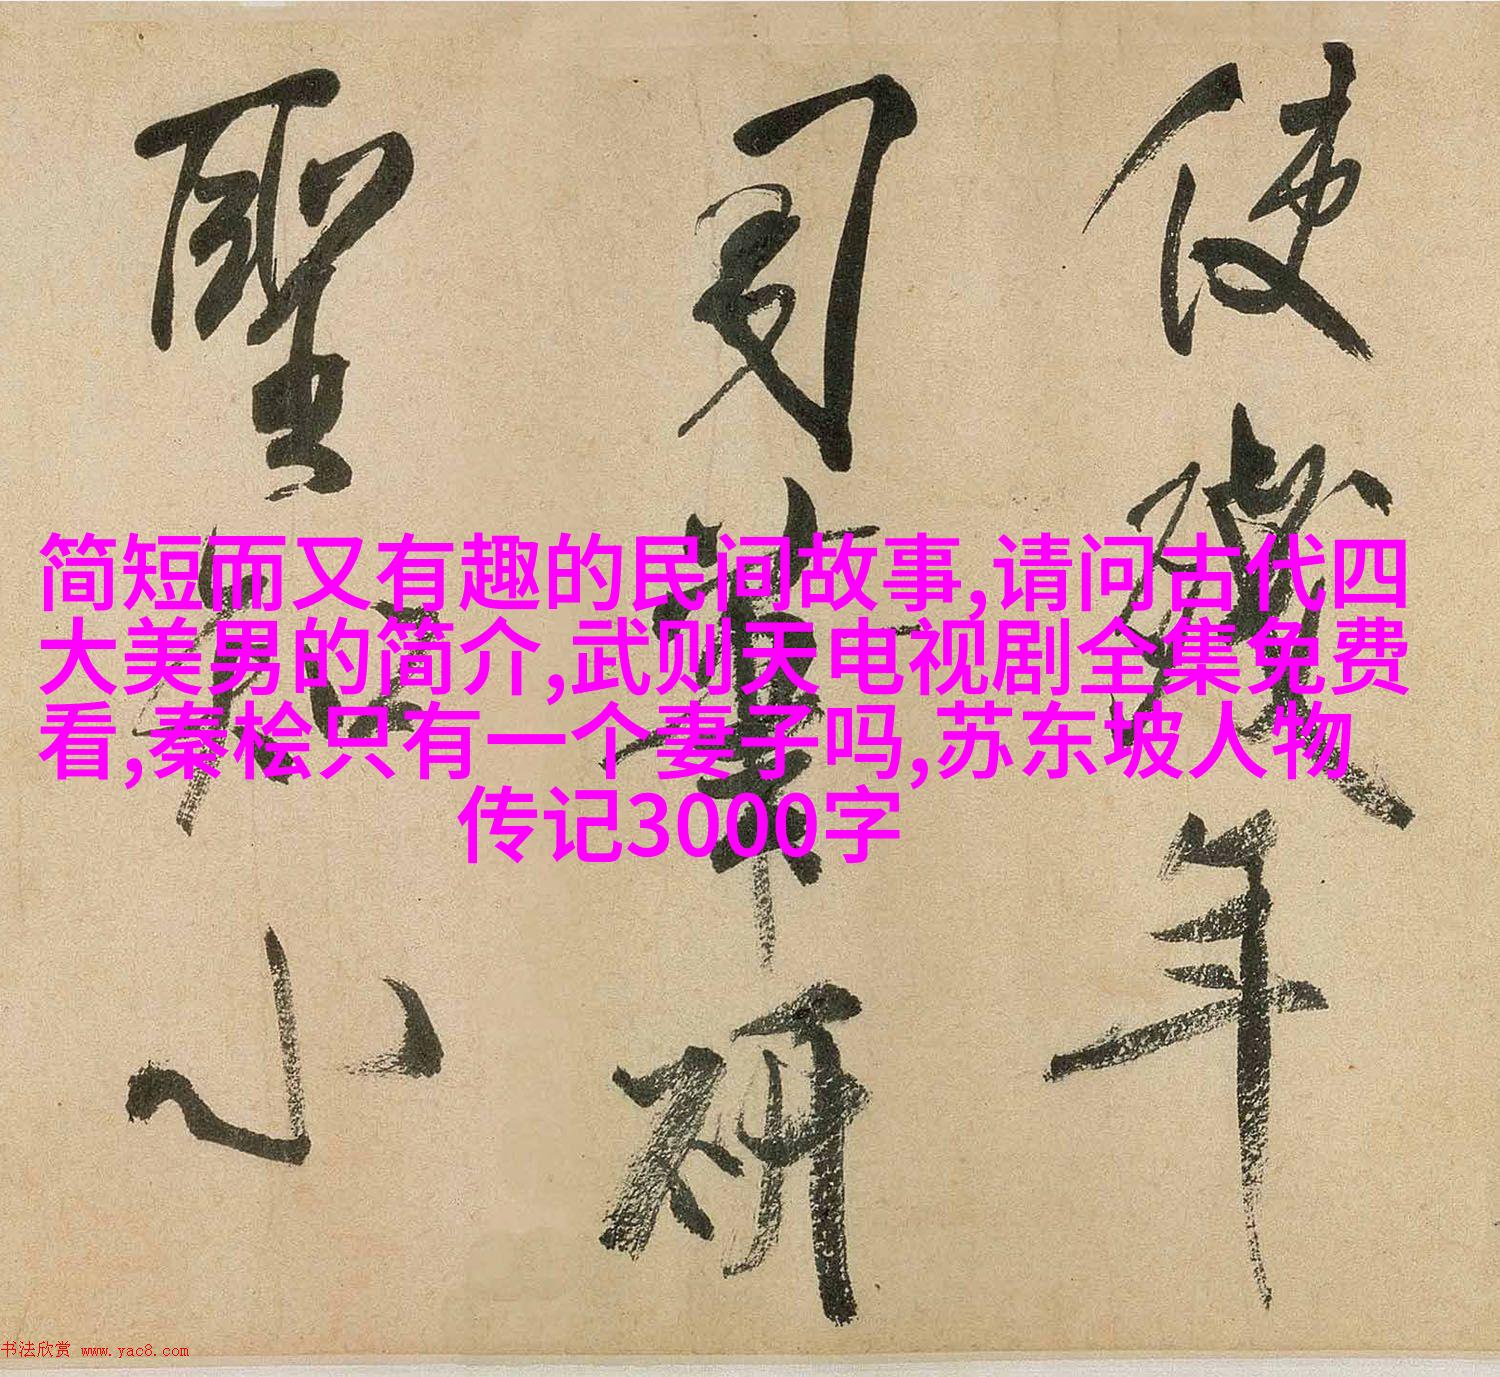 使殘年
司筆研
聖知小
简短而又有趣的民间故事,请问古代四
大美男的简介,武则天电视剧全集免费
看,秦桧只有一个妻子吗,苏东坡人物
传记3000字
书法欣赏 www.yac8.com